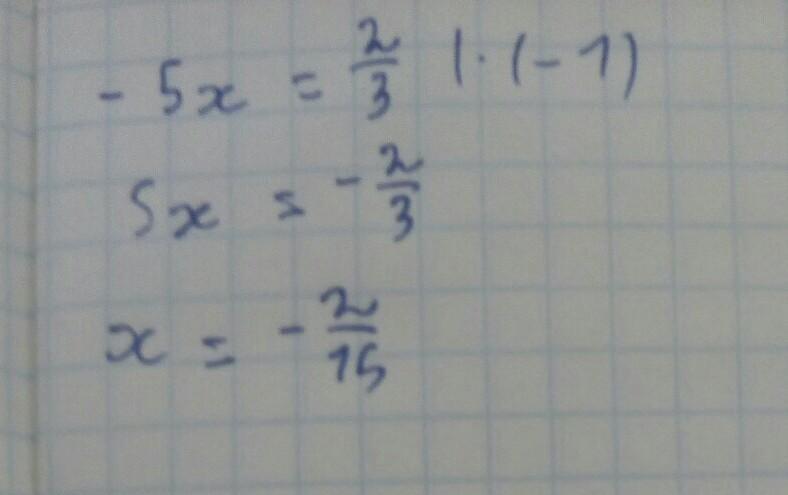 - 5x = 2/3 | · (-1)
5x = - 2/3
x = - 2/15